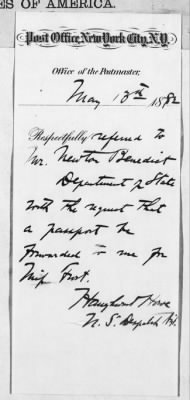 ES OF AMERICA.
Post Office, New York City, N.Y.
Office of the Postmaster,
May 8th 1882
Respectfully referred to
Mr. Newton Benedict
Department of State
with the request that
a passport be
forwarded to me for
Miss
U. S. Dispatch Agt.